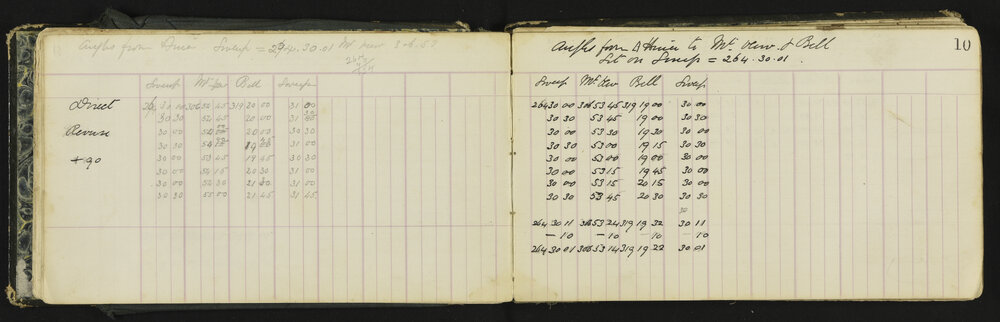 Angles from Sweep = 264.30.01 Mt View 3.6.
Sweep Mt View Bell Sweep
Direct 30 00 306 45 319 20 00 31 00
30 30 54 45 20 00 31
Reverse 30 00 54 20 00 30 30
30 30 54 30 30
+ 90 30 00 53 45 19 45 30 30
30 00 54 15 20 30 31 00
30 00 54 30 21 31 00
30 30 55 00 21 45 31 45
10
Angles from Δ to Mt. View & Bell
Set on Sweep = 264.30.01.
Sweep Mt View Bell Sweep
264 30 00 306 53 45 319 19 00 30 00
30 30 53 45 19 00 30 30
30 00 53 30 19 30 30 00
30 30 53 00 19 15 30 30
30 00 53 00 19 00 30 00
30 00 53 15 19 45 30 00
30 00 53 15 20 15 30 00
30 30 53 45 20 30 30 30
30
264 30 11 306 53 24 319 19 32 30 11
— 10 — 10 — 10 — 10
264 30 01 306 53 14 319 19 22 30 01